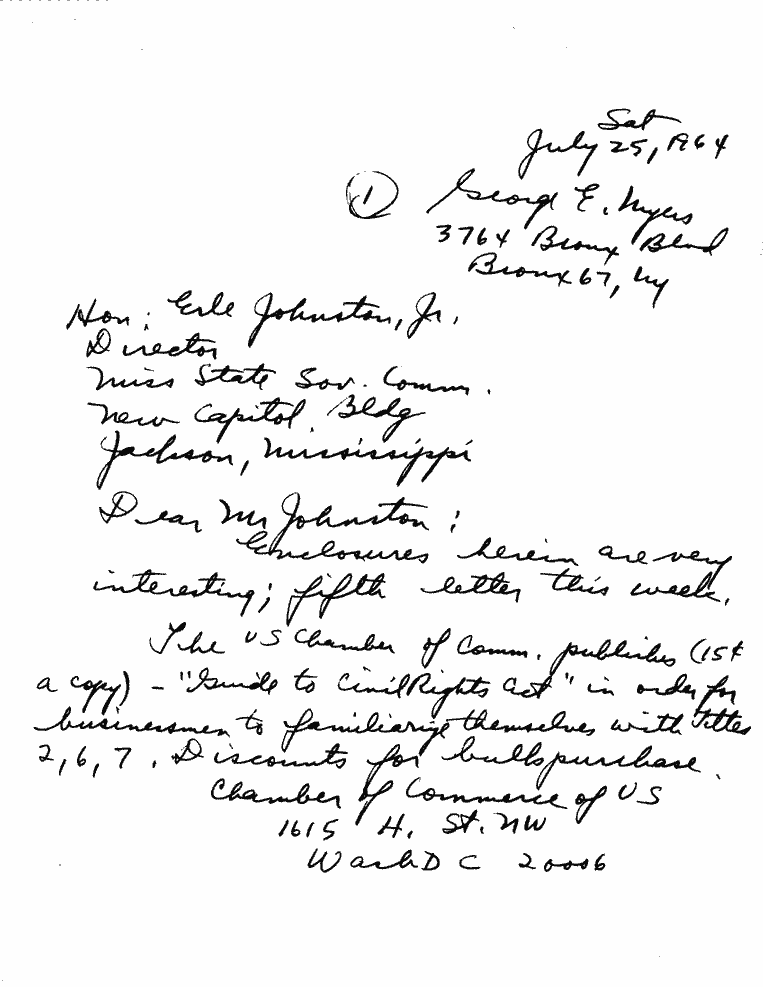 Sat
July 25, 1964
1 George E. Myers
3764 Bronx Blvd
Bronx 67, Ny
Hon: Erle Johnston, Jr.
Director
Miss State Sov. Comm.
New Capitol Bldg
Jackson, Mississippi
Dear Mr Johnston:
Enclosures herein are very
interesting; fifth letter this week.
The US Chamber of Comm. publishes (15¢
a copy) - "Guide to Civil Rights Act" in order for
businessmen to familiarize themselves with Titles
2, 6, 7. Discounts for bulk purchase.
Chamber of Commerce of US
1615 H. St. NW
Wash D C 20006